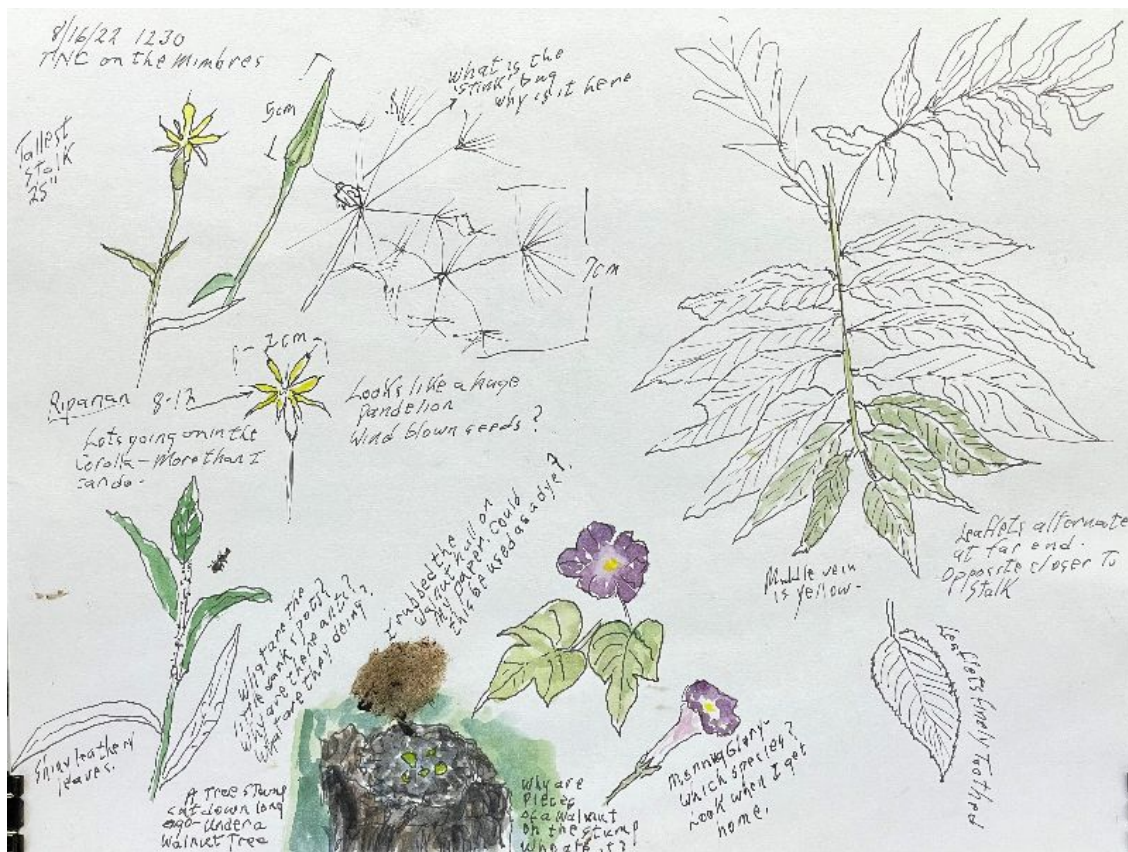 8/16/22 1230
TNC on the Mimbres
Tallest
stalk
25"
5cm
What is the
stink bug
why is it here
7cm
2cm
Riparian 8-13
Lots going on in the
corolla - More than I
can do.
Looks like a huge
Dandelion
Wind blown seeds?
Middle vein
is yellow.
Leaflets alternate
at far end.
Opposite closer to
stalk
Leaflets finely toothed
I rubbed the
walnut hull on
my paper. Could
this be used as a dye?
What are the
little dark spots?
Why are there ants?
What are they doing?
Shiny leathery
leaves.
A tree stump
cut down long
ago - under a
walnut tree
Why are
pieces
of a walnut
on the stump
Who ate it?
Morning Glory -
which species?
Look when I get
home.